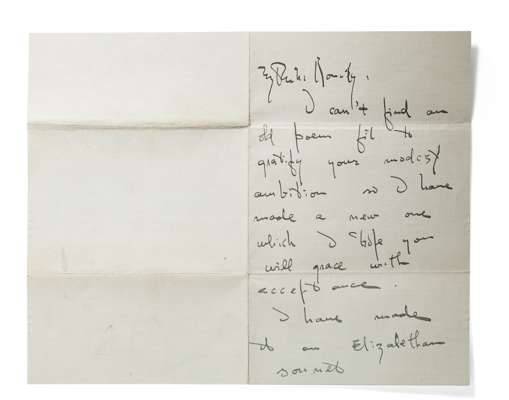 My
I can't find an
old poem fit to
gratify your modest
ambition so I have
made a new one
which I hope you
will grace with
acceptance.
I have made
it an Elizabethan
sonnet